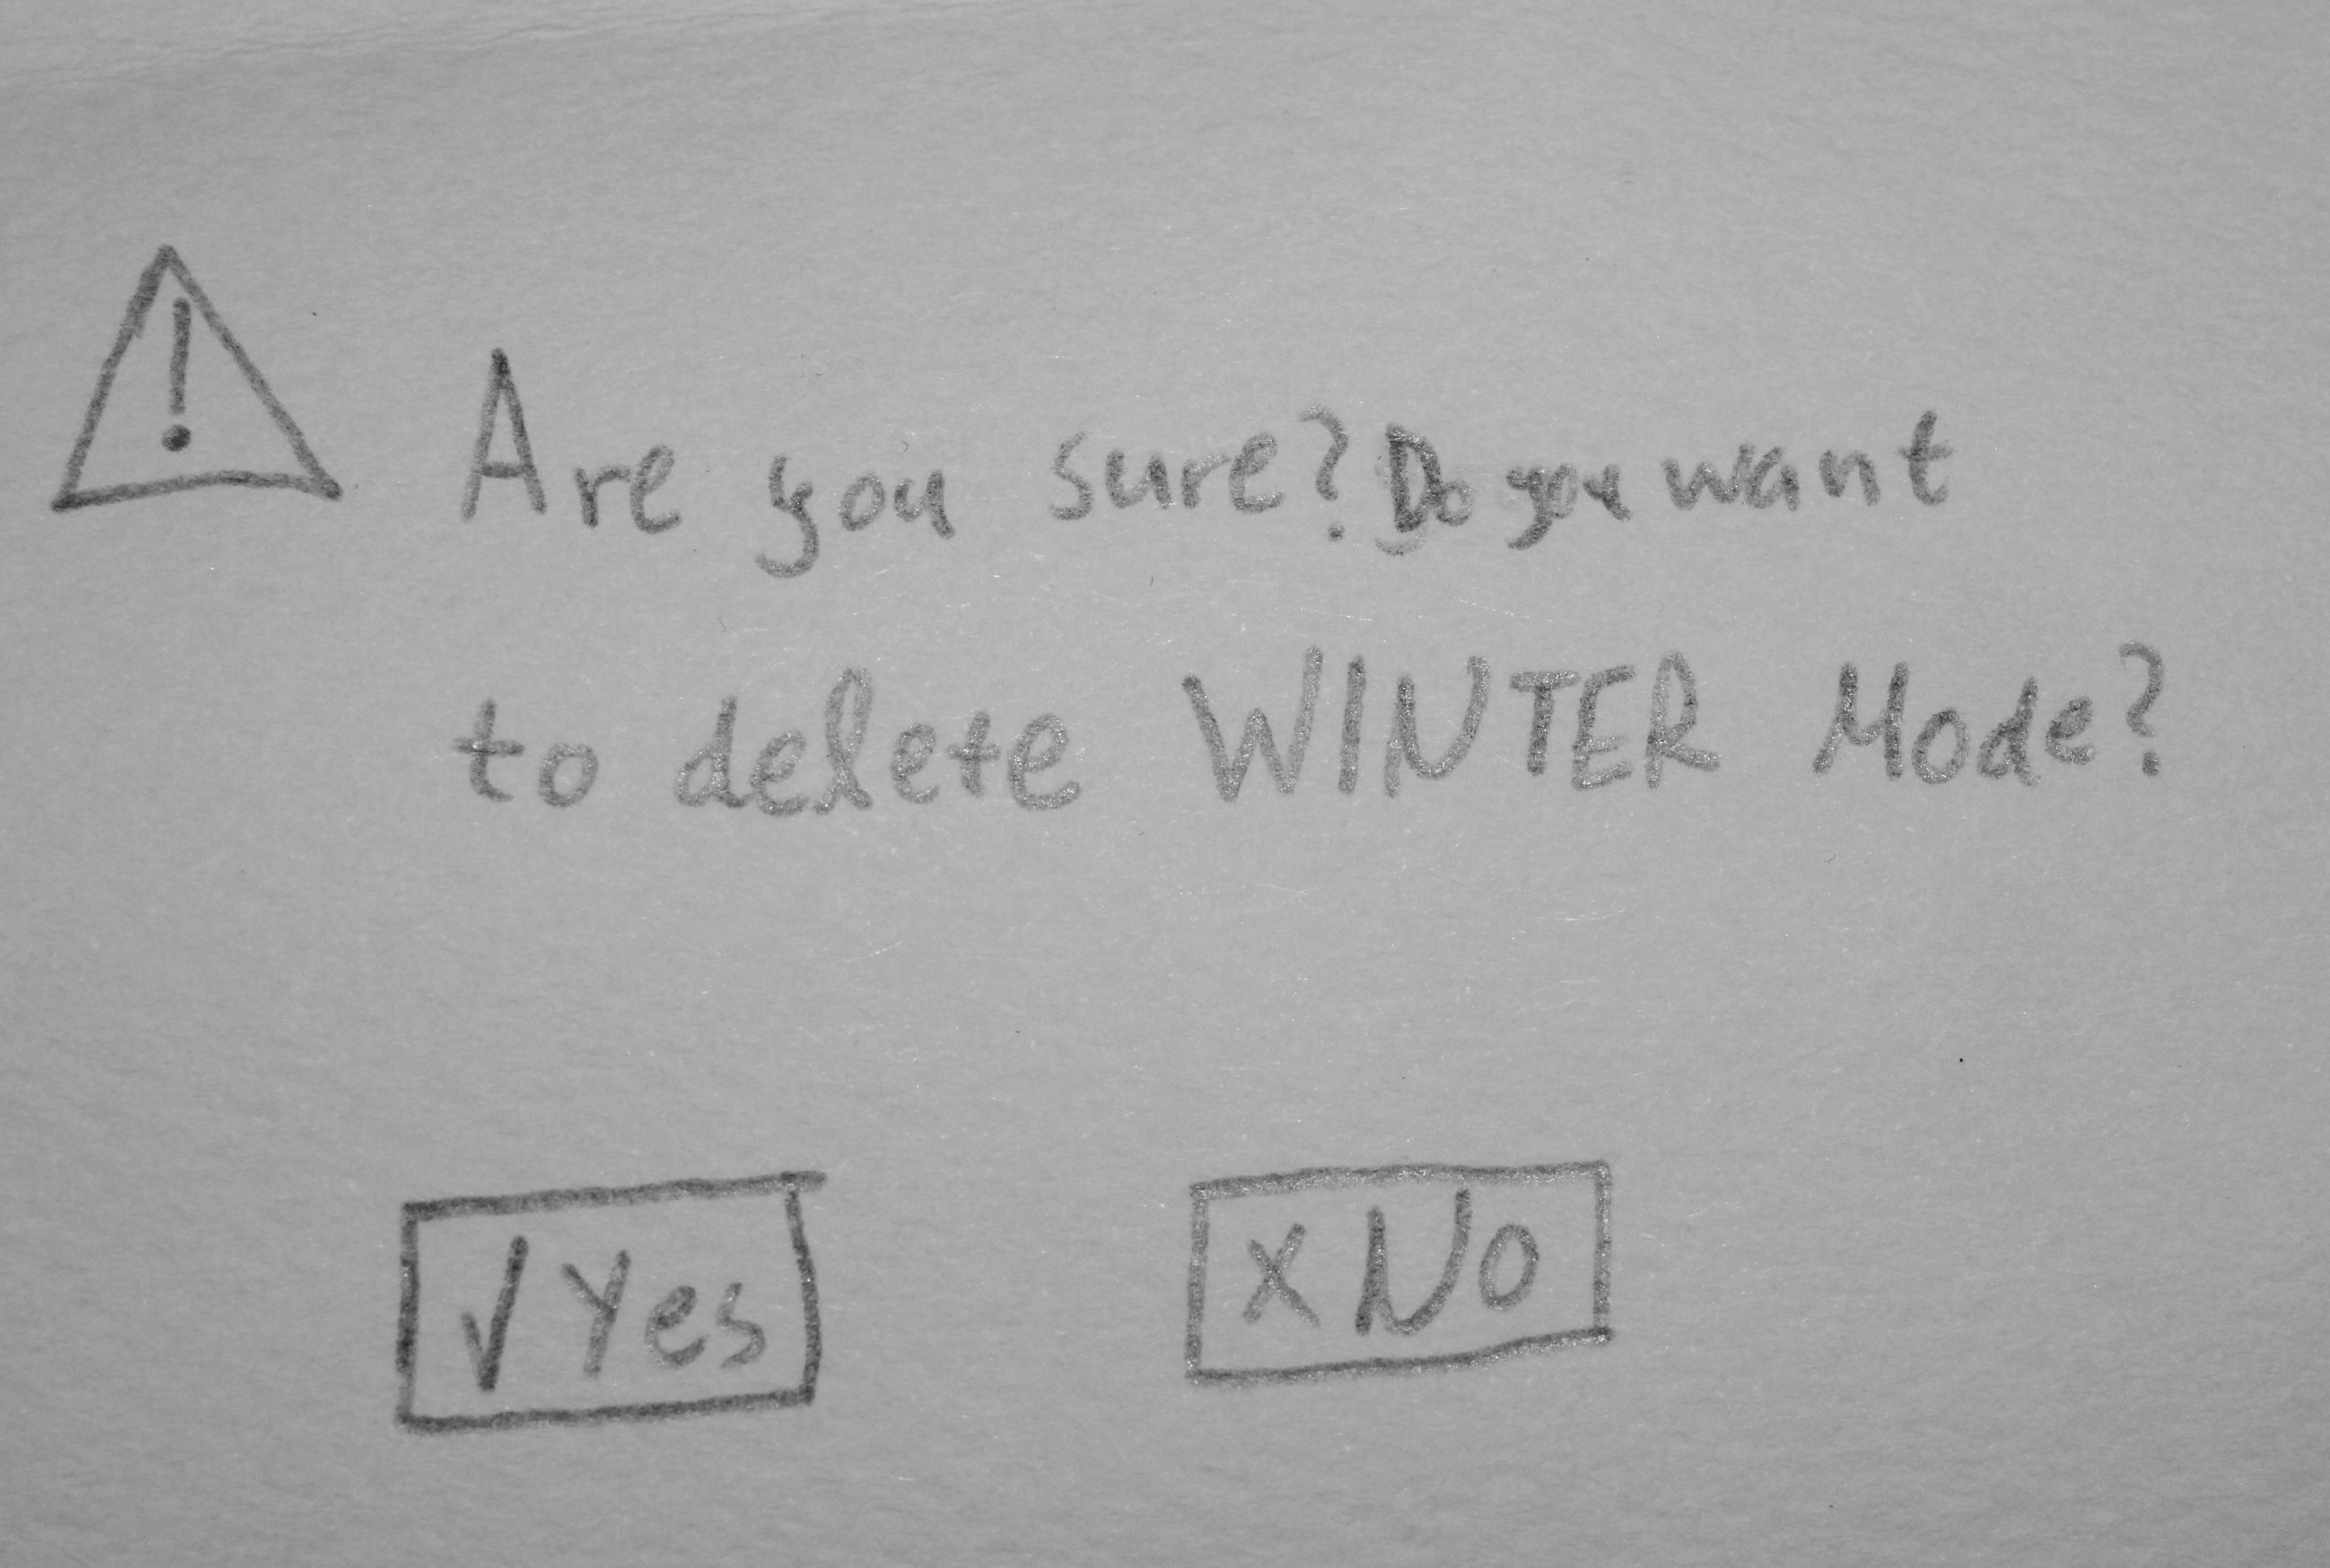 Are you sure? Do you want
to delete WINTER Mode?
√ Yes
x No